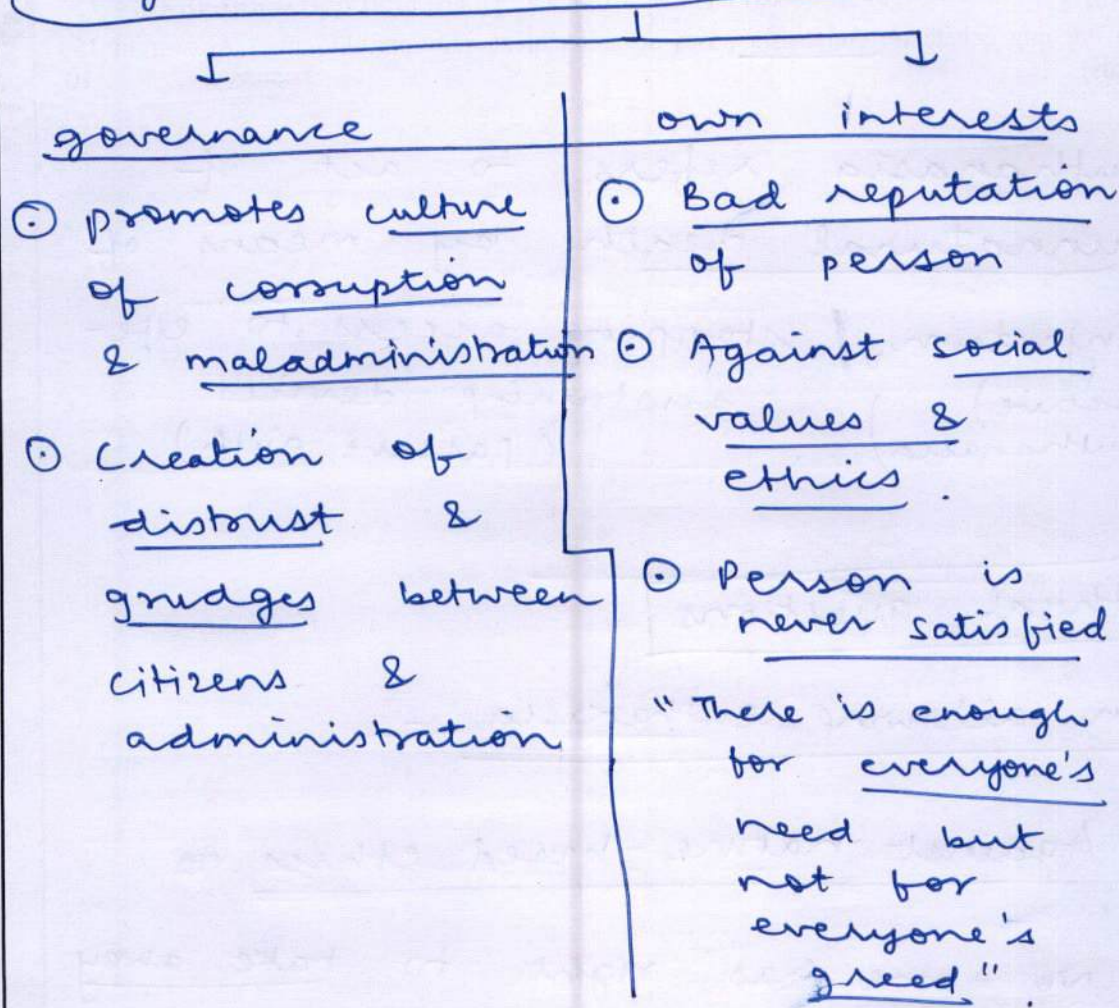 governance
⊙ promotes culture
of corruption
& maladministration
⊙ Creation of
distrust &
grudges between
citizens &
administration
own interests
⊙ Bad reputation
of person
⊙ Against social
values &
ethics.
⊙ Person is
never satisfied
"There is enough
for everyone's
need but
not for
everyone's
greed".